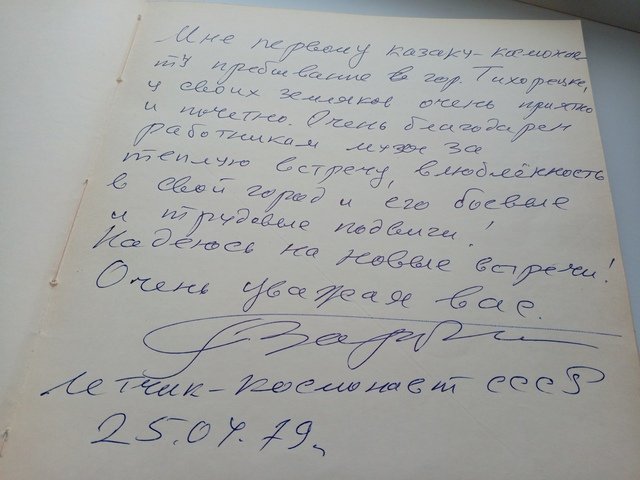 Мне первому казаку-космонав
ту пребывание в гор. Тихорецке,
у своих земляков очень приятно
и почетно. Очень благодарен
работникам музея за
теплую встречу, влюблённость
в свой город и его боевые
и трудовые подвиги!
Надеюсь на новые встречи!
Очень уважая вас.
Летчик-космонавт СССР
25.04.79г.